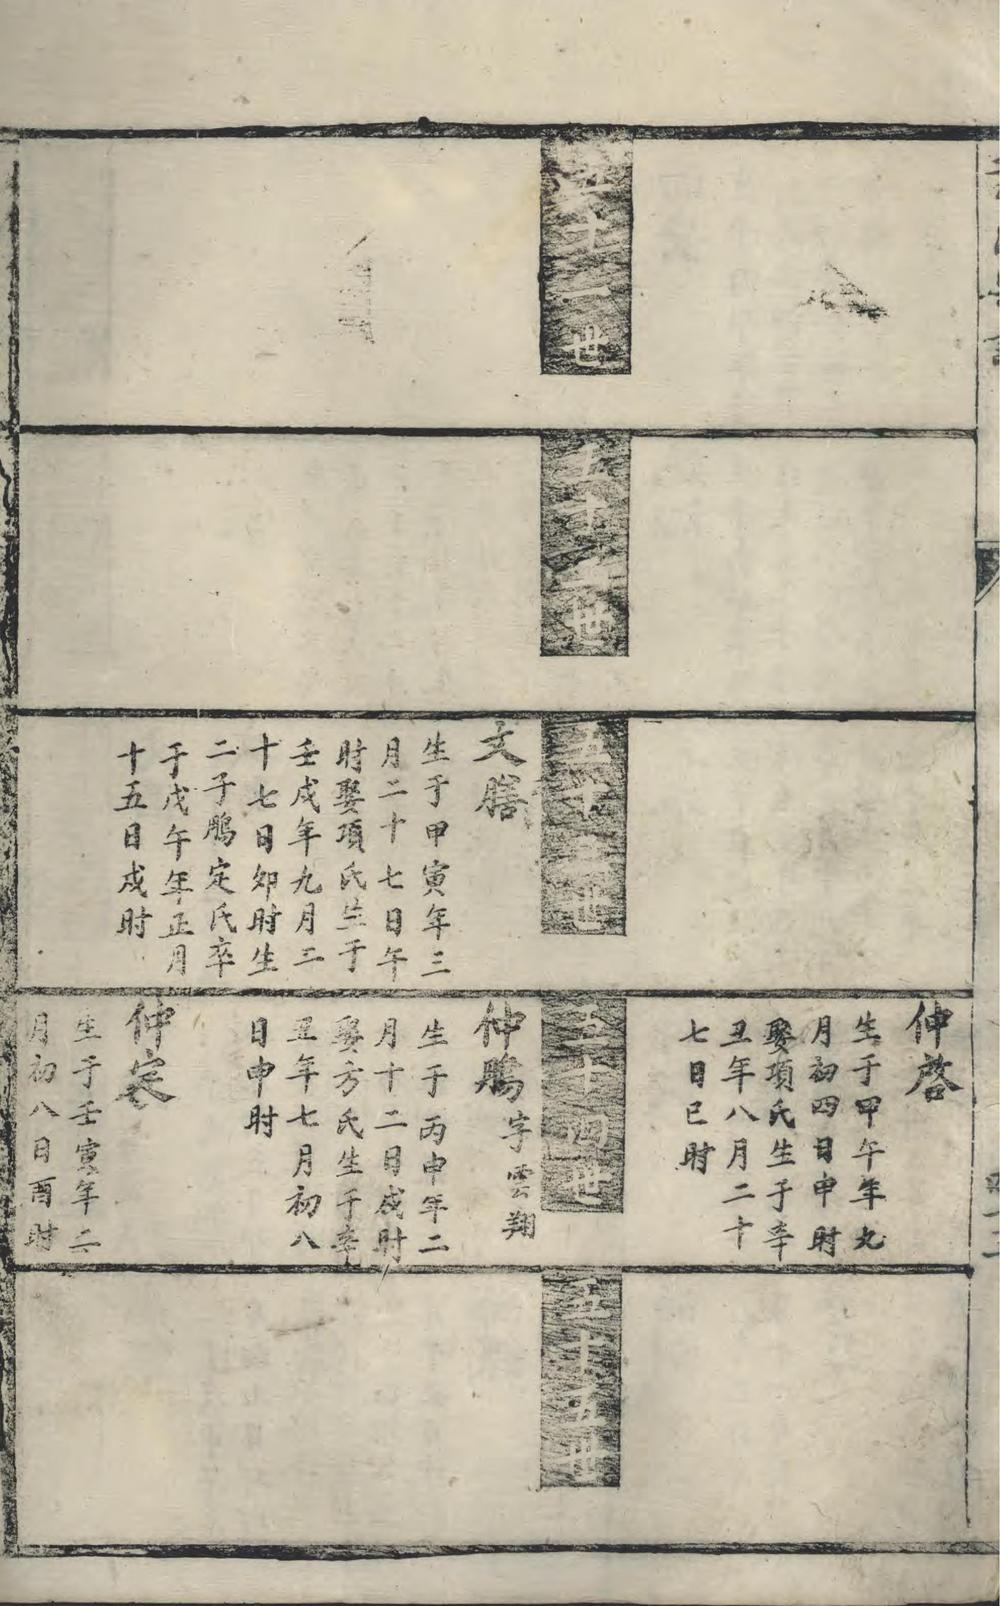 五十一世
五十二世
五十三世
文膳
生于甲寅年三
月二十七日午
时娶項氏生于
壬戌年九月二
十七日卯时生
二子鵬定氏卒
于戊午年正月
十五日戌时
仲啓
生于甲午年九
月初四日申时
娶項氏生于辛
丑年八月二十
七日巳时
五十四世
仲鵬字雲翔
生于丙申年二
月十二日戌时
娶方氏生于辛
丑年七月初八
日申时
仲定
生于壬寅年二
月初八日酉时
五十五世